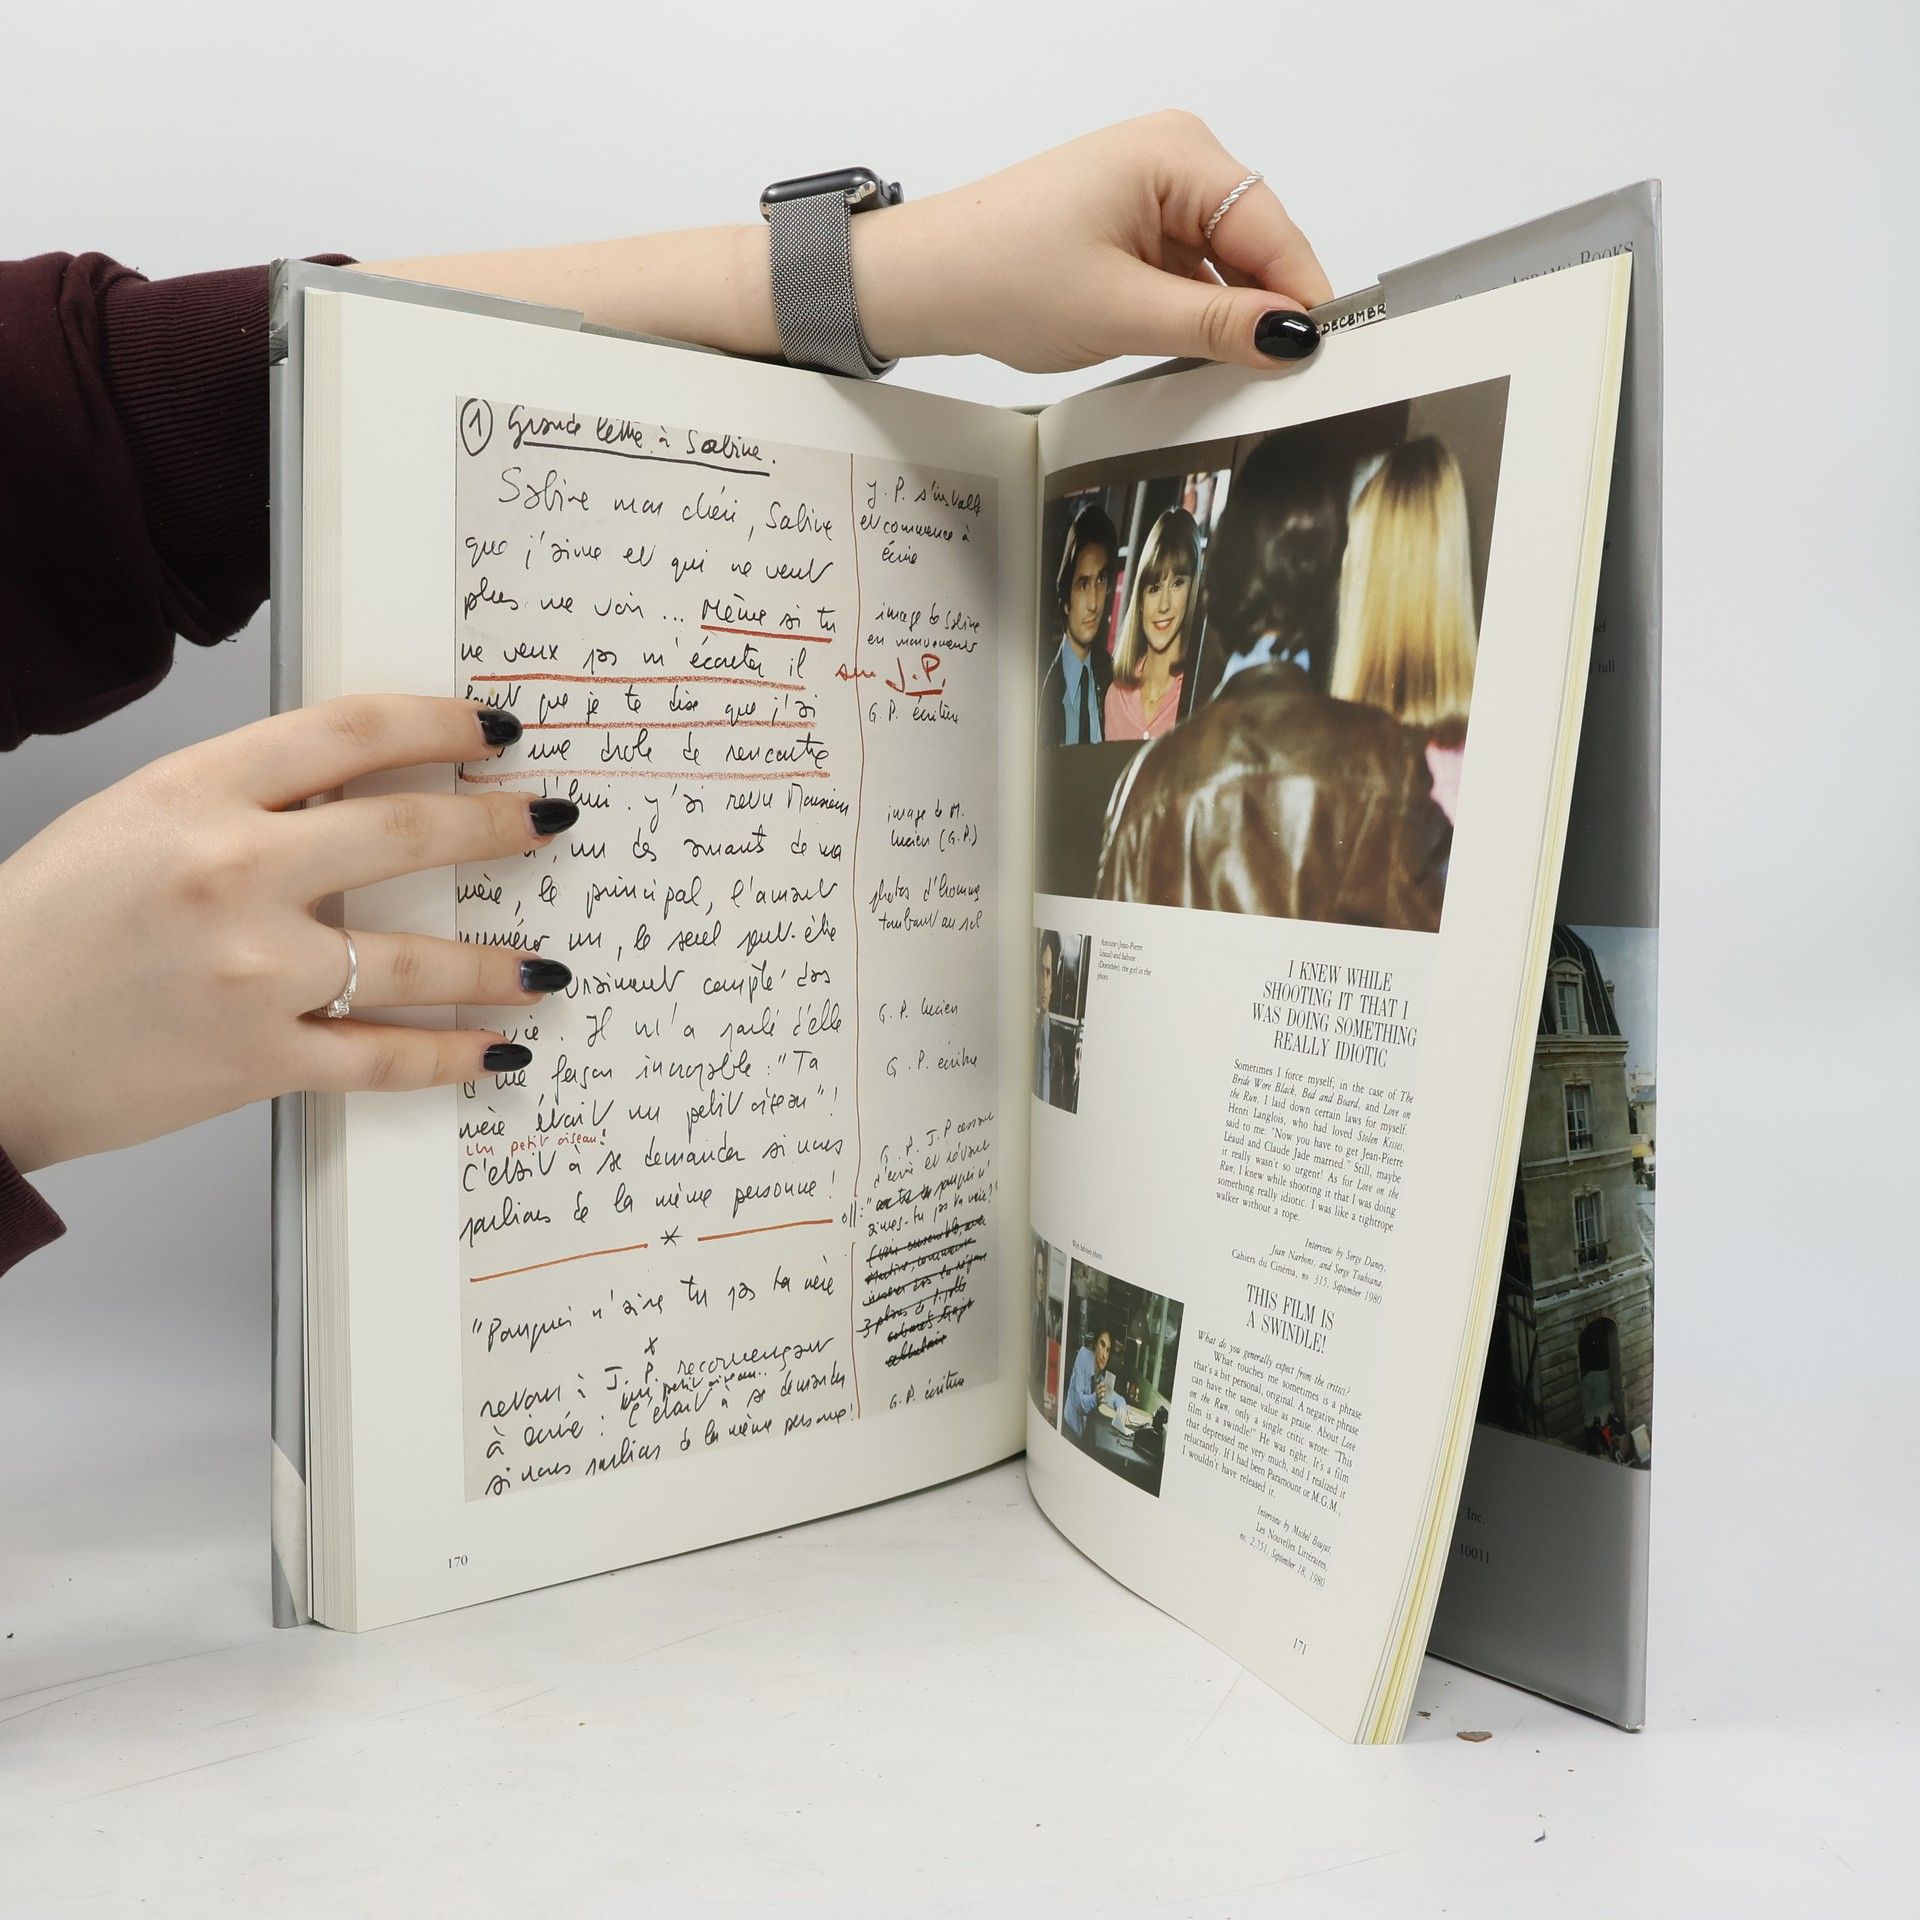 ① Grande lettre à Sabine.
Sabine mon chéri, Sabine
que j'aime et qui ne veut
plus me voir ... Même si tu
ne veux pas m'écouter il
faut que je te dise que j'ai
une drole de rencontre
d'hui. J'ai revu Monsieur
, un des amants de ma
mère, le principal, l'amant
numéro un, le seul peut-être
vraiment compté dans
vie. Il m'a parlé d'elle
façon incroyable : "Ta
mère était un petit oiseau" !
Un petit oiseau!
C'était à se demander si nous
parlions de la même personne !
*
"Pourquoi n'aime tu pas ta mère
x
retour à J. P. recommençant
un petit oiseau..
à écrire : C'était à se demander
si nous parlions de la même personne!
J. P. s'installe
et commence à
écrire
image de Sabine
en mouvement
sur J.P.
G. P. écriture
image de M.
Lucien (G.P.)
photos d'hommes
tombant au sol
G. P. Lucien
G. P. écriture
G. P. J.P cessant
d'écrire et rêvant
off: " pourquoi n'
aimes-tu pas ta mère?"
G. P. écriture
170
DECEMBR
ABRAMS BOOKS
Antoine (Jean-Pierre
Léaud) and Sabine
(Dorothée), the girl in the
photo
With Sabine's photo
I KNEW WHILE
SHOOTING IT THAT I
WAS DOING SOMETHING
REALLY IDIOTIC
Sometimes I force myself; in the case of The
Bride Wore Black, Bed and Board, and Love on
the Run, I laid down certain laws for myself.
Henri Langlois, who had loved Stolen Kisses,
said to me: "Now you have to get Jean-Pierre
Léaud and Claude Jade married." Still, maybe
it really wasn't so urgent! As for Love on the
Run, I knew while shooting it that I was doing
something really idiotic. I was like a tightrope
walker without a rope.
Interview by Serge Daney,
Jean Narboni, and Serge Toubiana,
Cahiers du Cinéma, no. 315, September 1980
THIS FILM IS
A SWINDLE!
What do you generally expect from the critics?
What touches me sometimes is a phrase
that's a bit personal, original. A negative phrase
can have the same value as praise. About Love
on the Run, only a single critic wrote: "This
film is a swindle!" He was right. It's a film
that depressed me very much, and I realized it
reluctantly. If I had been Paramount or M.G.M.,
I wouldn't have released it.
Interview by Michel Boujut,
Les Nouvelles Littéraires,
no. 2,751, September 18, 1980
171
full
Inc.
10011